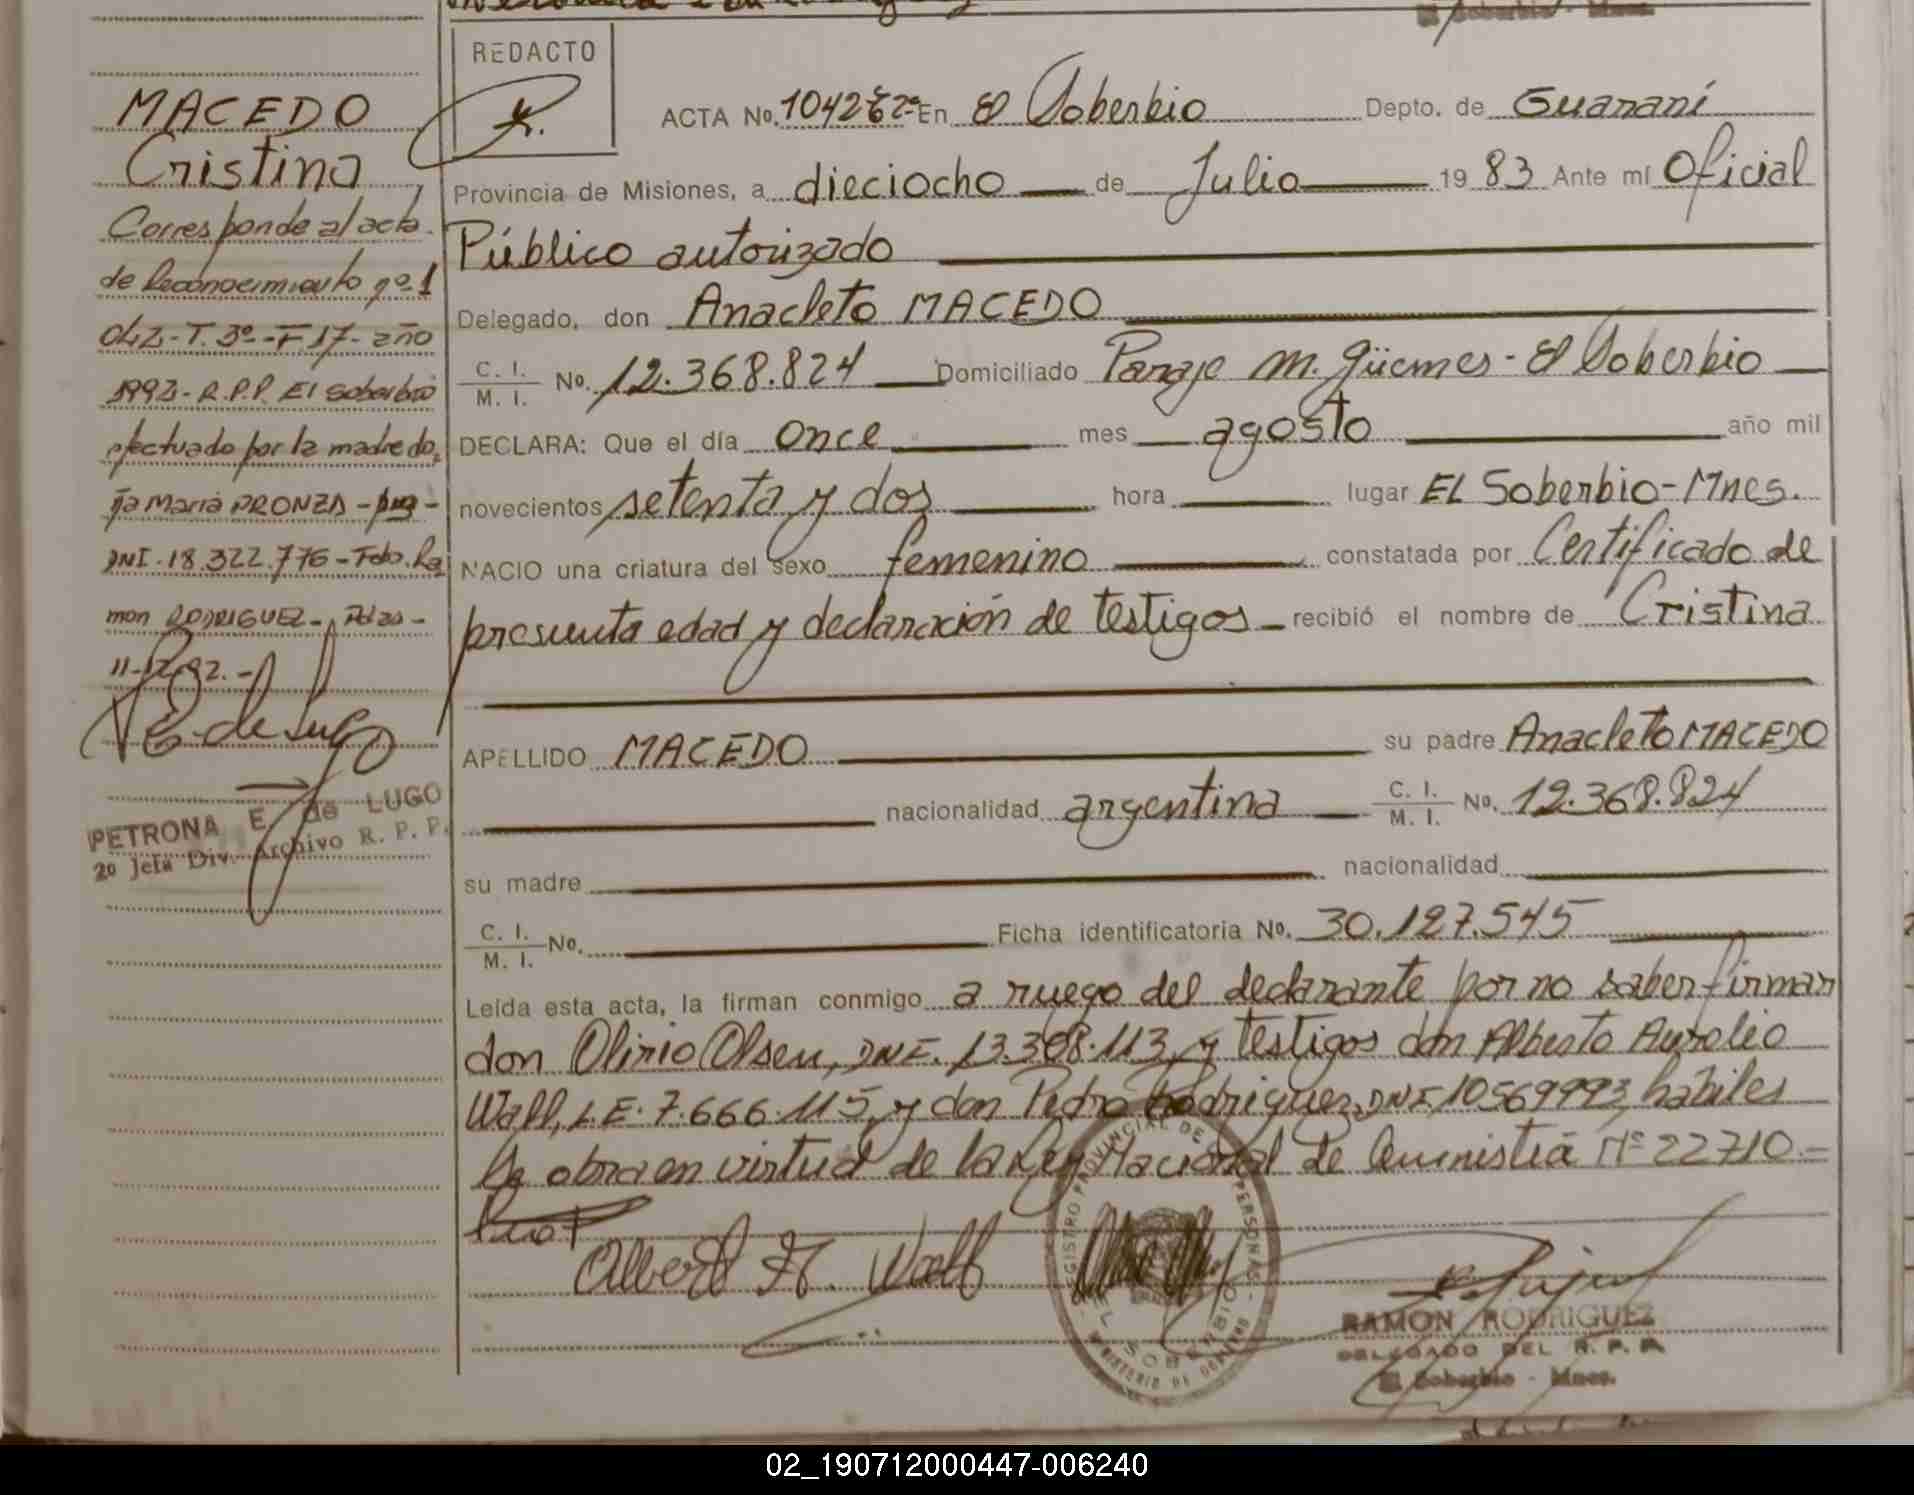 MACEDO
Cristina
Corresponde al acta
de Reconocimiento nº 1
042-T. 3º-F.17-año
1992-R.P.P. El Soberbio
efectuado por la madre do
ña Maria
DNI.18.322.776-Fdo. Ra
mon RODRIGUEZ- Pdas-
11-12-92.-
PETRONA E. de LUGO
2º Jefa Div. Archivo R. P. P.
REDACTO
ACTA No. En El Soberbio Depto. de Guaraní
Provincia de Misiones, a dieciocho de Julio 19 83 Ante mí Oficial
Público autorizado
Delegado, don Anacleto MACEDO
C. I.
M. I. No. 12.368.824 Domiciliado Paraje M. Güemes - El Soberbio
DECLARA: Que el día once mes agosto año mil
novecientos setenta y dos hora lugar EL Soberbio-Mnes.
NACIO una criatura del sexo femenino constatada por Certificado de
presunta edad y declaración de testigos recibió el nombre de Cristina
APELLIDO MACEDO su padre Anacleto MACEDO
nacionalidad argentina C. I.
M. I. No. 12.368.824
su madre nacionalidad
C. I.
M. I. No. Ficha identificatoria No. 30.127.545
Leída esta acta, la firman conmigo a ruego del declarante por no saber firmar
don Olirio Olsen, DNI. 13.308.113, y testigos don Alberto Aurelio
Wall, L.E. 7.666.115, y don Pedro Rodriguez, DNI 10569993, habiles
Se obra en virtud de la Ley Nacional de Amnistia Nº 22710.-
REGISTRO PROVINCIAL DE PERSONAS
EL SOBERBIO
MINISTERIO DE GOBIERNO
RAMON RODRIGUEZ
DELEGADO DEL R. P. P.
El Soberbio - Mnes.
02_190712000447-006240